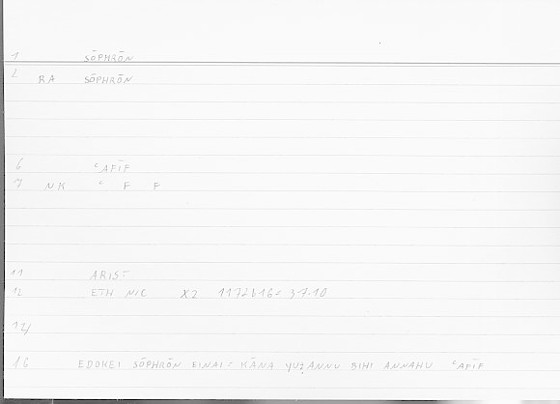 1 SŌPHRŌN
2 RA SŌPHRŌN
6 ʿAFĪF
7 NK ʿ F F
11 ARIST
12 ETH NIC X2 1172b16 37.10
14
16 EDOKEI SŌPHRŌN EINAI : KĀNA YUẒANNU BIHI ANNAHU ʿAFĪF